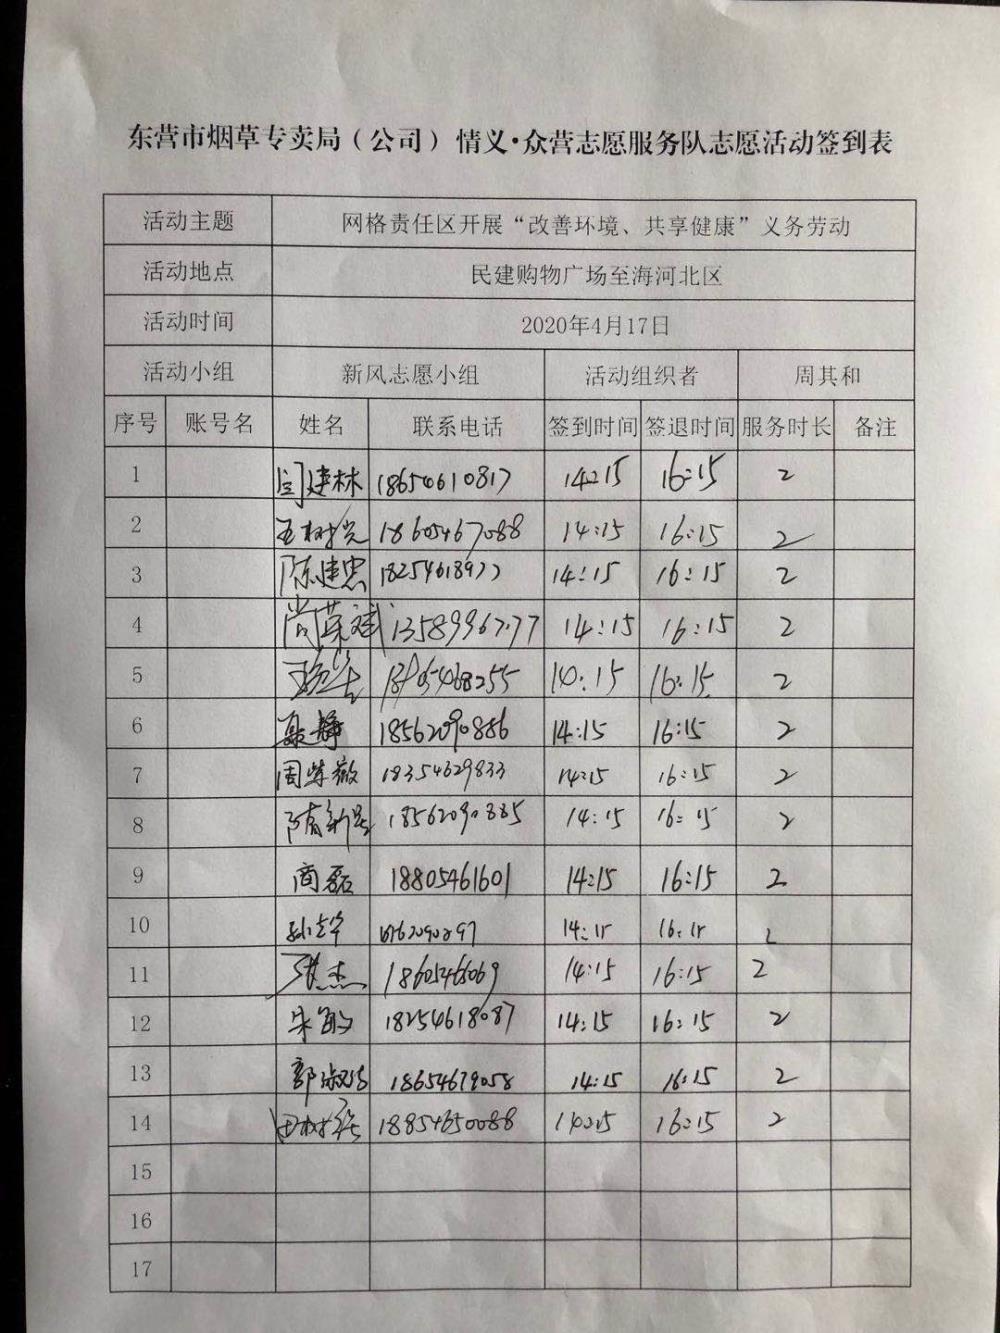 东营市烟草专卖局（公司）情义·众营志愿服务队志愿活动签到表
活动主题 网格责任区开展“改善环境、共享健康”义务劳动
活动地点 民建购物广场至海河北区
活动时间 2020年4月17日
活动小组 新风志愿小组 活动组织者 周其和
序号 账号名 姓名 联系电话 签到时间 签退时间 服务时长 备注
1 闫建林 18654610817 14:15 16:15 2
2 王树光 18605467088 14:15 16:15 2
3 陈建忠 14:15 16:15 2
4 尚荣斌 14:15 16:15 2
5 14:15 16:15 2
6 聂静 18562090886 14:15 16:15 2
7 周紫薇 18354629833 14:15 16:15 2
8 隋新 18562090885 14:15 16:15 2
9 商磊 18805461601 14:15 16:15 2
10 14:15 16:15 2
11 张杰 18605466069 14:15 16:15 2
12 宋敏 18254618087 14:15 16:15 2
13 郭淑洁 18654679058 14:15 16:15 2
14 田树 18854650088 14:15 16:15 2
15
16
17